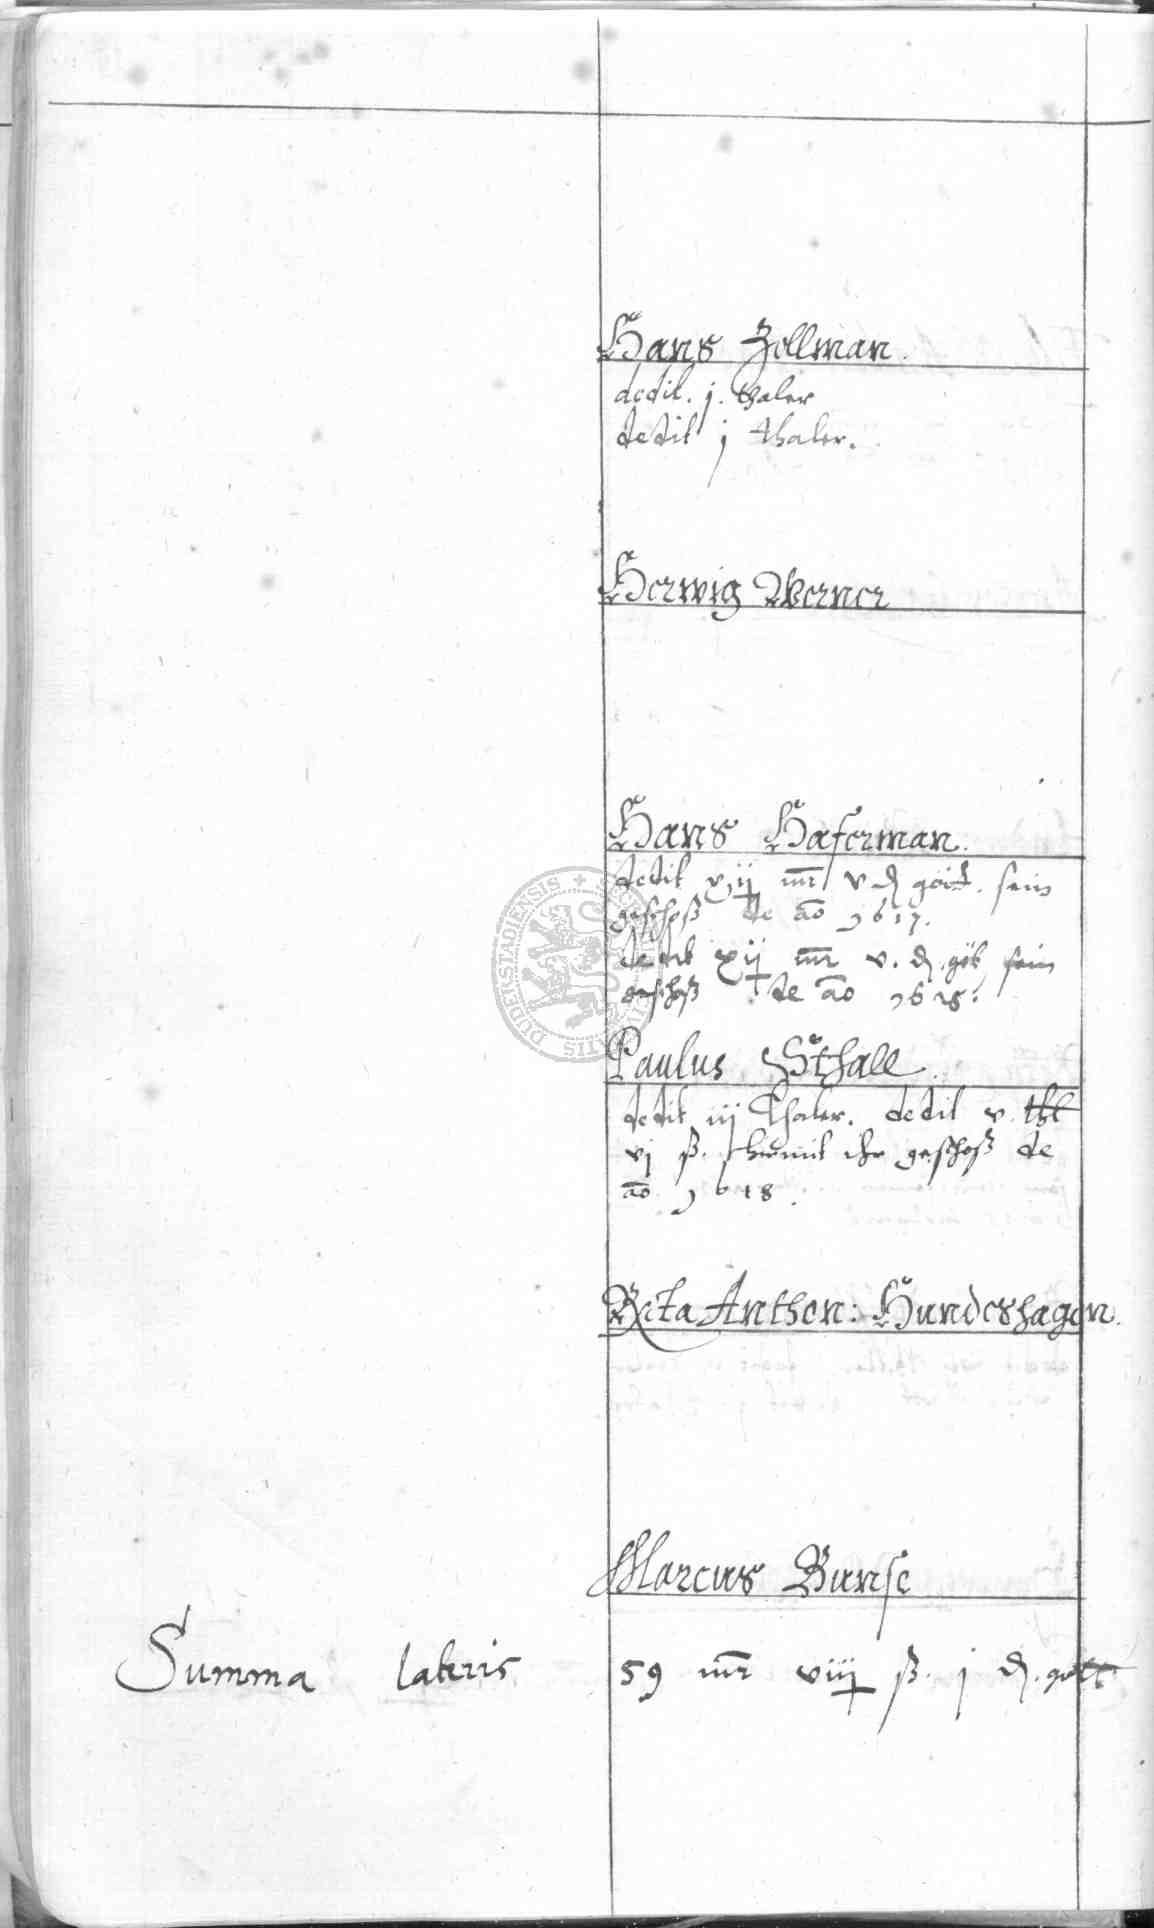 Hans Zollman.
dedit. j. thaler
dedit j thaler.
Herwig Werner
Hans Haferman.
dedit xij mr v ₰ gött. sein
geschoß de ao 1617.
dedit xij mr v. ₰. gött sein
geschoß de ao 1618.
Paulus Sthall
dedit iij thaler. dedit v. thl
vj ß. hiemit ihr geschoß de
ao 1618.
Rcta Anthon: Hundeshagen.
Marcus Bunse
Summa lateris 59 mr viij ß. j ₰. gött
DUDERSTADIENSIS